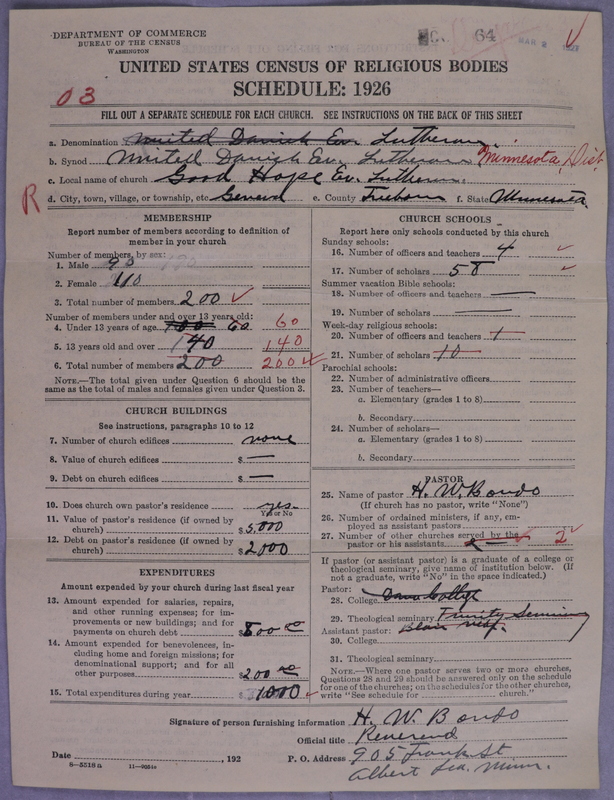 DEPARTMENT OF COMMERCE
BUREAU OF THE CENSUS
WASHINGTON
64
MAR 2
UNITED STATES CENSUS OF RELIGIOUS BODIES
SCHEDULE: 1926
03
FILL OUT A SEPARATE SCHEDULE FOR EACH CHURCH. SEE INSTRUCTIONS ON THE BACK OF THIS SHEET
a. Denomination United Danish Ev. Lutheran.
b. Synod United Danish Ev. Lutheran Minnesota Dist.
c. Local name of church Good Hope Ev. Luthern
R
d. City, town, village, or township, etc Geneva e. County Freeborn f. State Minnesota
MEMBERSHIP
Report number of members according to definition of
member in your church
Number of members, by sex:
1. Male 90
2. Female 110
3. Total number of members 200
Number of members under and over 13 years old:
4. Under 13 years of age 60 60
5. 13 years old and over 140 140
6. Total number of members 200 200
NOTE.—The total given under Question 6 should be the
same as the total of males and females given under Question 3.
CHURCH BUILDINGS
See instructions, paragraphs 10 to 12
7. Number of church edifices none
8. Value of church edifices $ —
9. Debt on church edifices $ —
10. Does church own pastor's residence yes
Yes or No
11. Value of pastor's residence (if owned by
church) $5,000
12. Debt on pastor's residence (if owned by
church) $2000
EXPENDITURES
Amount expended by your church during last fiscal year
13. Amount expended for salaries, repairs,
and other running expenses; for im-
provements or new buildings; and for
payments on church debt $800 00
14. Amount expended for benevolences, in-
cluding home and foreign missions; for
denominational support; and for all
other purposes $200 00
15. Total expenditures during year $1000
CHURCH SCHOOLS
Report here only schools conducted by this church
Sunday schools:
16. Number of officers and teachers 4
17. Number of scholars 58
Summer vacation Bible schools:
18. Number of officers and teachers —
19. Number of scholars —
Week-day religious schools:
20. Number of officers and teachers 1
21. Number of scholars 10
Parochial schools:
22. Number of administrative officers
23. Number of teachers—
a. Elementary (grades 1 to 8)
b. Secondary
24. Number of scholars—
a. Elementary (grades 1 to 8)
b. Secondary
PASTOR
25. Name of pastor H. W. Bondo
(If church has no pastor, write "None")
26. Number of ordained ministers, if any, em-
ployed as assistant pastors
27. Number of other churches served by the
pastor or his assistants 2
If pastor (or assistant pastor) is a graduate of a college or
theological seminary, give name of institution below. (If
not a graduate, write "No" in the space indicated.)
Pastor:
28. College Dana College
29. Theological seminary Trinity Seminary
Assistant pastor: Blair Nebr.
30. College
31. Theological seminary
NOTE.—Where one pastor serves two or more churches,
Questions 28 and 29 should be answered only on the schedule
for one of the churches; on the schedules for the other churches,
write "See schedule for church."
Signature of person furnishing information H. W. Bondo
Official title Reverend
Date , 192 P. O. Address 905 Frank St
Albert Lea, Minn.
8—5518a 11—9664